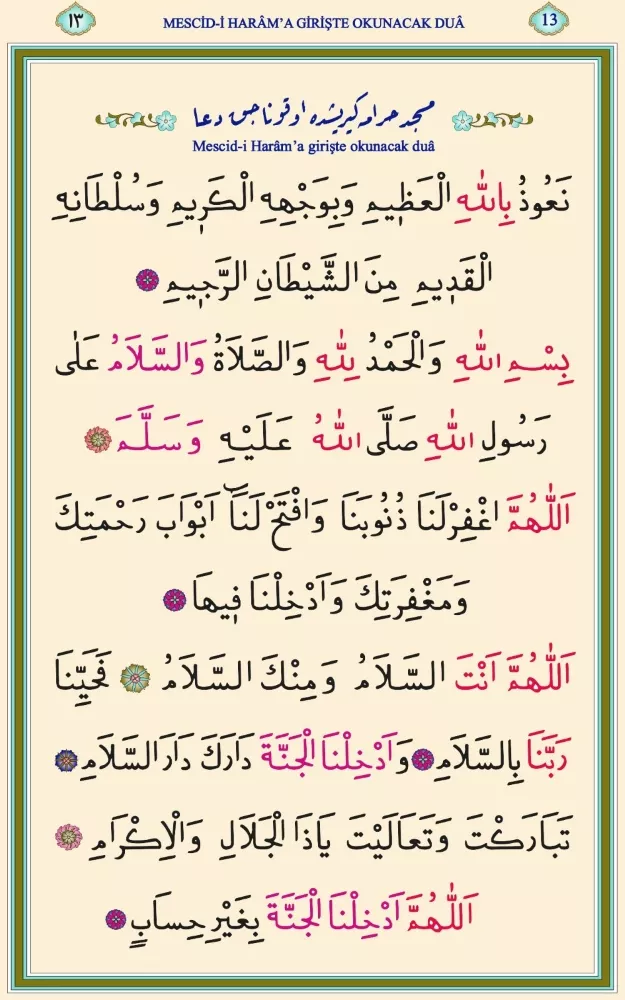 ١٣ MESCİD-İ HARÂM’A GİRİŞTE OKUNACAK DUÂ 13
مسجد حرامه كيريشده اوقوناجق دعا
Mescid-i Harâm’a girişte okunacak duâ
نَعُوذُ بِاللّٰهِ الْعَظِيمِ وَبِوَجْهِهِ الْكَرِيمِ وَسُلْطَانِهِ
الْقَدِيمِ مِنَ الشَّيْطَانِ الرَّجِيمِ
بِسْمِ اللّٰهِ وَالْحَمْدُ لِلّٰهِ وَالصَّلَاةُ وَالسَّلَامُ عَلٰى
رَسُولِ اللّٰهِ صَلَّى اللّٰهُ عَلَيْهِ وَسَلَّمَ
اَللّٰهُمَّ اغْفِرْلَنَا ذُنُوبَنَا وَافْتَحْ لَنَٓا اَبْوَابَ رَحْمَتِكَ
وَمَغْفِرَتِكَ وَاَدْخِلْنَا فِيهَا
اَللّٰهُمَّ اَنْتَ السَّلَامُ وَمِنْكَ السَّلَامُ فَحَيِّنَا
رَبَّنَا بِالسَّلَامِ وَاَدْخِلْنَا الْجَنَّةَ دَارَكَ دَارَ السَّلَامِ
تَبَارَكْتَ وَتَعَالَيْتَ يَاذَا الْجَلَالِ وَالْاِكْرَامِ
اَللّٰهُمَّ اَدْخِلْنَا الْجَنَّةَ بِغَيْرِ حِسَابٍ